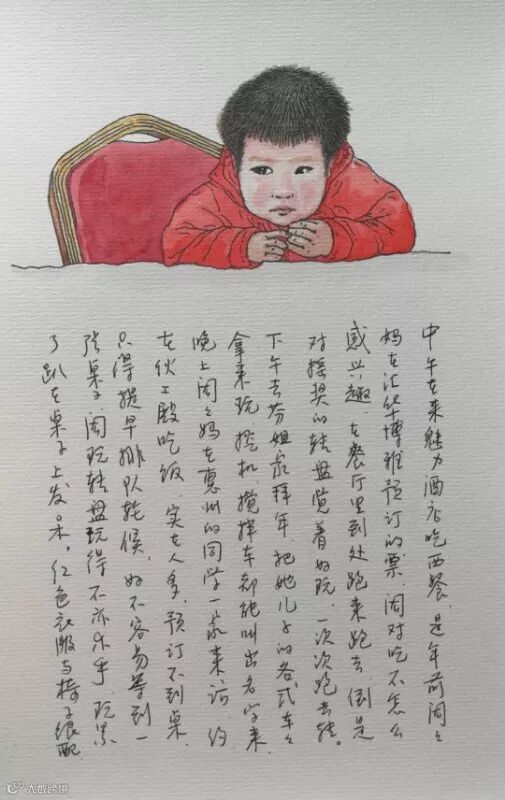 中午在来魅力酒店吃西餐，是年前闹々
妈在汇华博雅预订的票，闹对吃不怎么
感兴趣，在餐厅里到处跑来跑去，倒是
对摇奖的转盘觉着好玩，一次次跑去转。
下午去芬姐家拜年，把她儿子的各式车々
拿来玩，挖机，搅拌车都能叫出名字来
晚上闹々妈在惠州的同学一家来访，约
在伙工殿吃饭，实在人多，预订不到桌，
只得提早排队轮候，好不容易等到一
张桌子，闹玩转盘玩得不亦乐乎，玩累
了趴在桌子上发呆，红色衣服与椅子很配
大数跨境